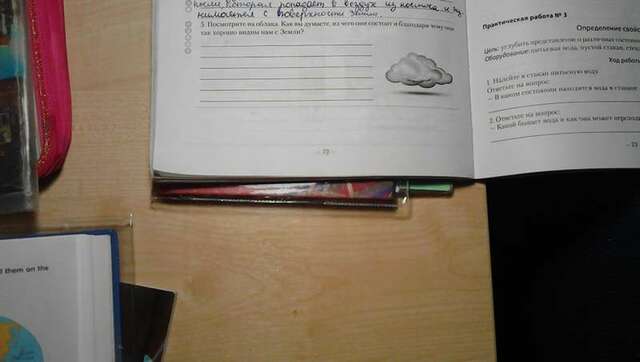 попадает в воздух из
с поверхности Земли.
3. Посмотрите на облака. Как вы думаете, из чего они состоят и благодаря чему они
так хорошо видны нам с Земли?
– 22 –
Практическая работа № 3
Определение свой
Цель: углубить представление о различных состояни
Оборудование: питьевая вода, пустой стакан,
Ход рабо
1. Налейте в стакан питьевую воду.
Ответьте на вопрос:
– В каком состоянии находится вода в стакане
2. Ответьте на вопрос:
– Какой бывает вода и как она может переход
– 23
them on the